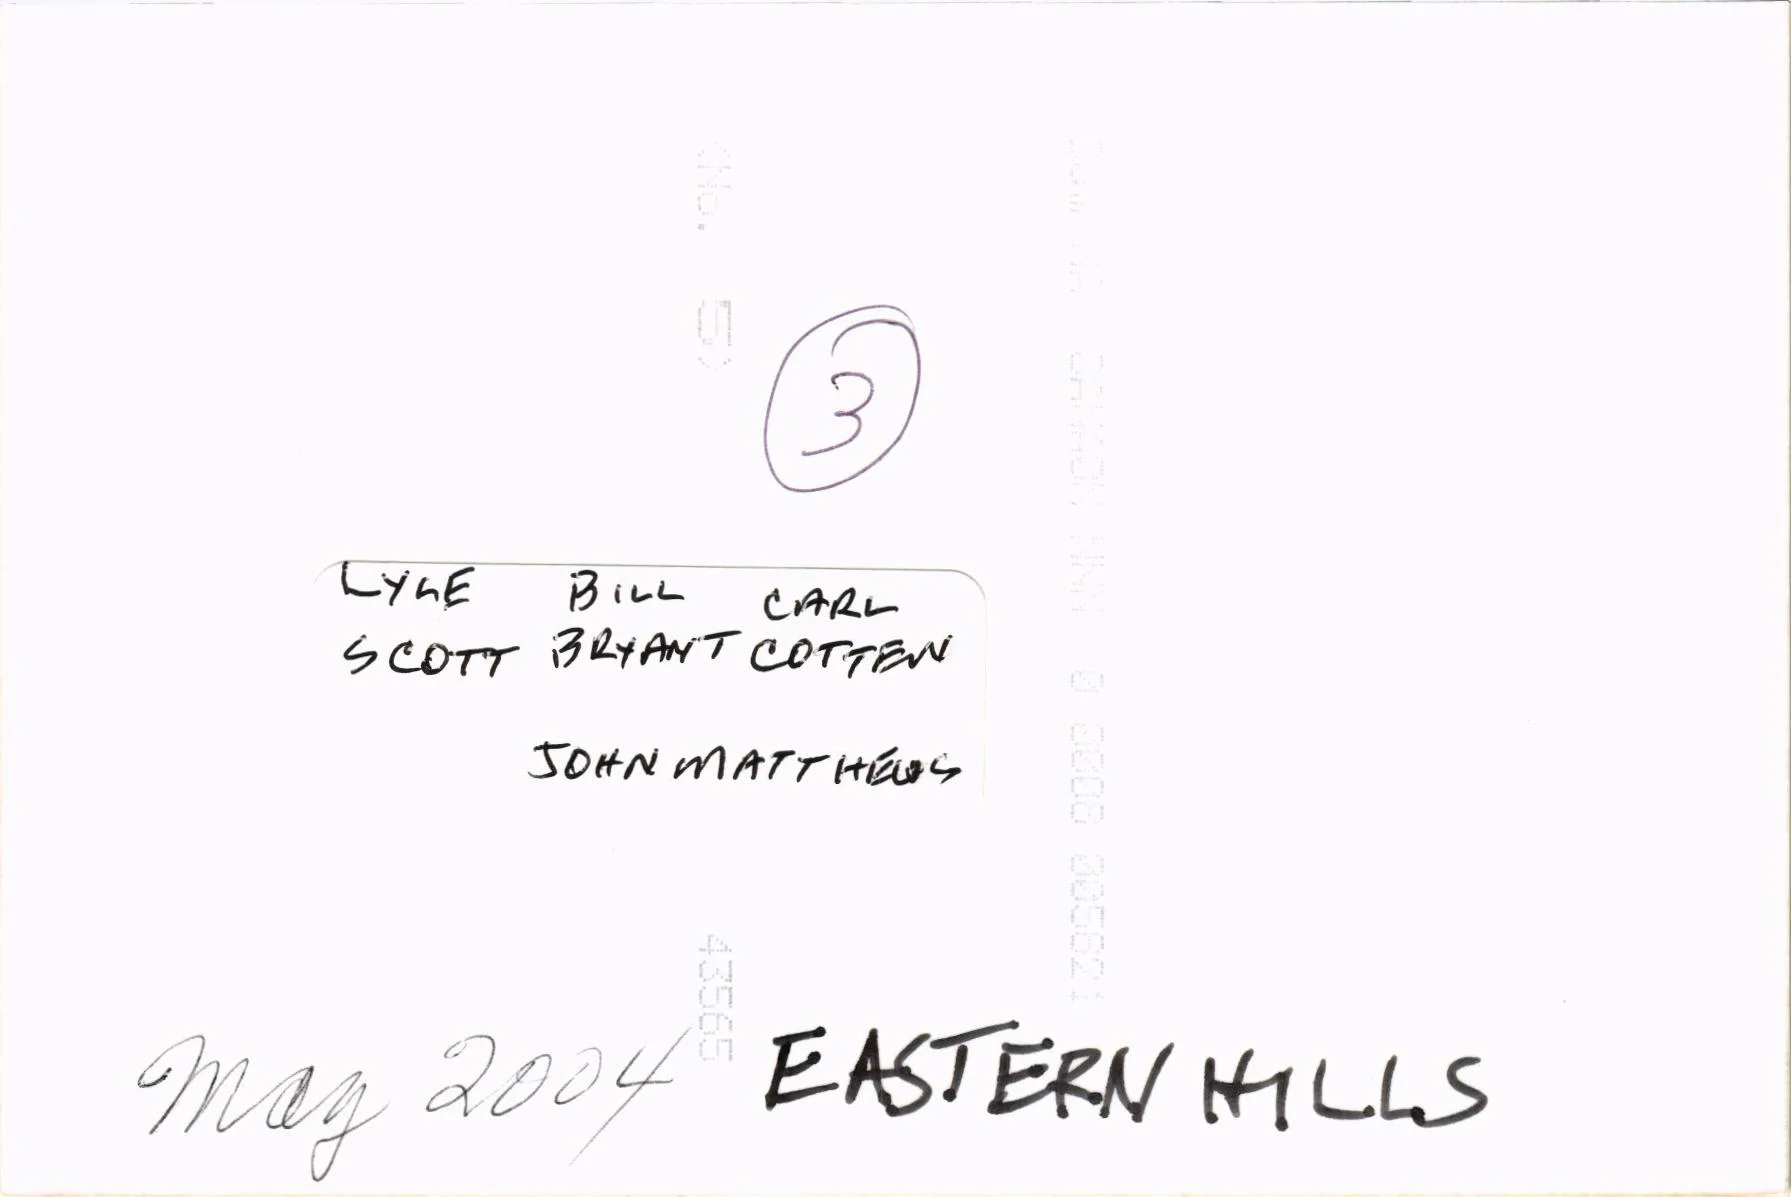 <No. 5>
3
LYLE BILL CARL
SCOTT BRYANT COTTEN
JOHN MATTHEWS
43565
May 2004 EASTERN HILLS